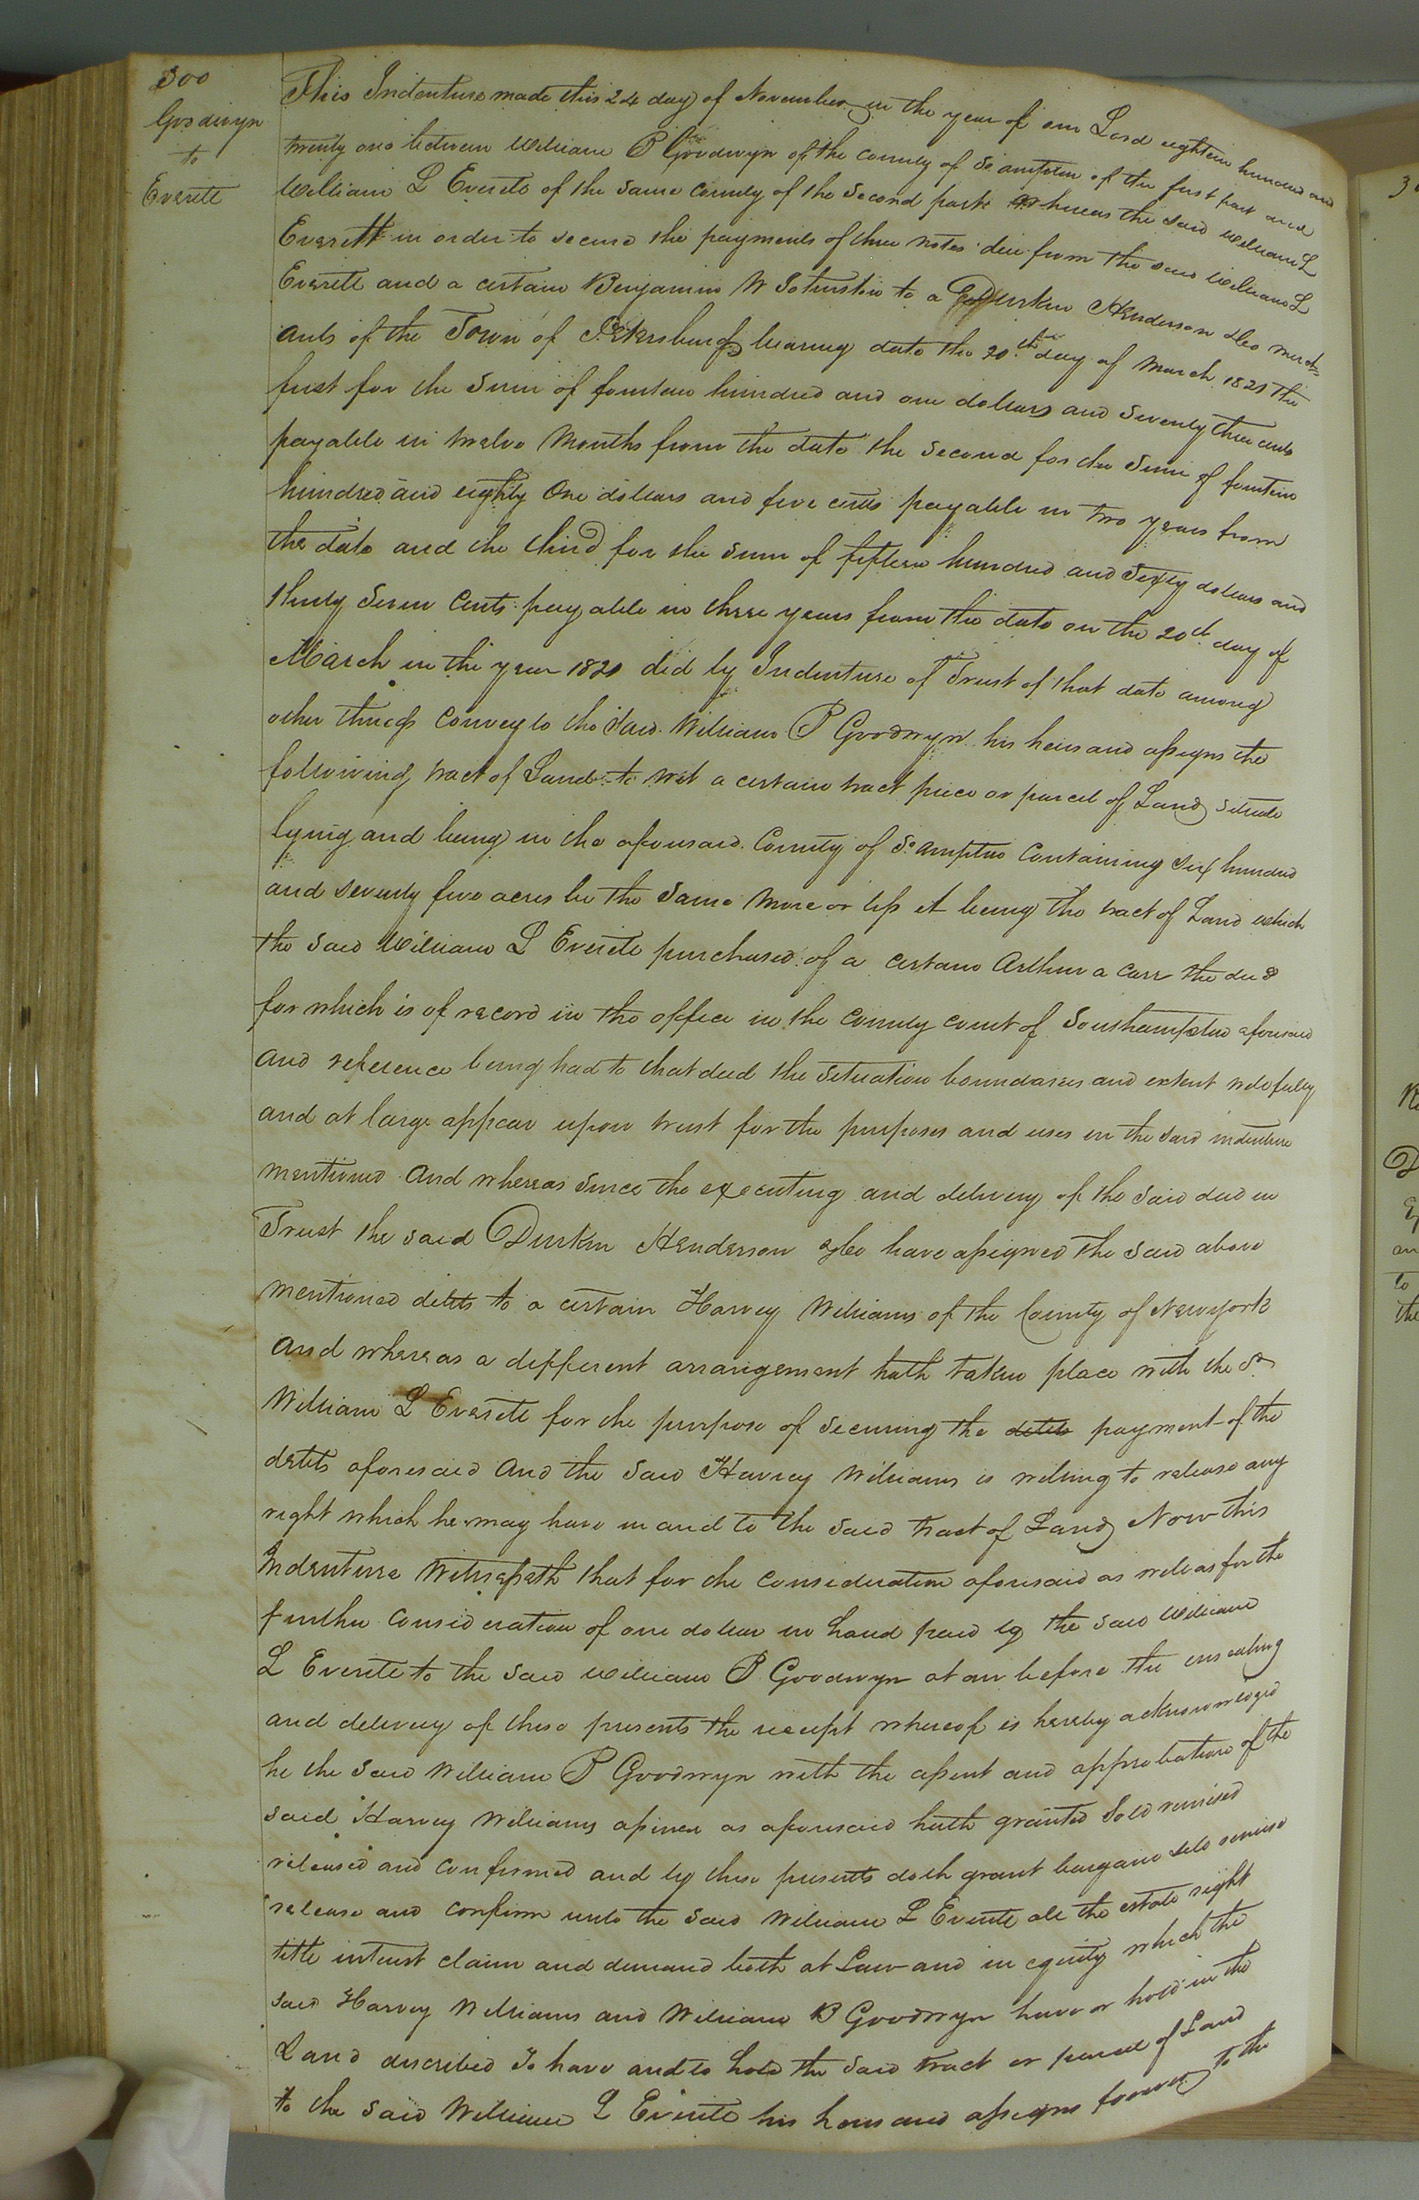 300
Goodwyn
to
Everitt
This Indenture made this 24 day of November in the year of our Lord eighteen hundred and
twenty one between William B Goodwyn of the county of So ampton of the first part and
William L Everitt of the same County of the Second part Whereas the said William L
Everitt in order to secure the payments of three notes due from the said William L
Everitt and a certain Benjamin W Johnston to a Dunkin Henderson &co merch=
ants of the Town of Petersburg bearing date the 20th day of March 1821 the
first for the Sum of fourteen hundred and one dollars and Seventy three cents
payable in twelve Months from the date the Second for the Sum of fourteen
hundred and eighty One dollars and five cents payable in two years from
the date and the third for the Sum of fifteen hundred and Sixty dollars and
thirty Seven Cents payable in three years from the date on the 20th day of
March in the year 1821 did by Indenture of Trust of that date among
other things Convey to the said William B Goodwyn his heirs and assigns the
following tract of Land to wit a certain tract piece or parcel of Land Situate
lying and being in the aforesaid County of So ampton Containing Six hundred
and seventy five acres be the Same More or less it being the tract of Land which
the Said William L Everitt purchased of a certain Arthur a Carr the deed
for which is of record in the office in the County Court of Southampton aforesaid
And reference being had to that deed the Situation boundaries and extent will fully
and at large appear upon trust for the purposes and uses in the said indenture
mentioned And whereas Since the executing and delivery of the Said deed in
Trust the said Dunkin Henderson &Co have assigned the said above
mentioned debts to a certain Harvey Williams of the County of New york
And whereas a different arrangement hath taken place with the sd
William L Everitt for the purpose of Securing the debts payment of the
debts aforesaid And the said Harvey Williams is willing to release any
right which he may have in and to the said tract of Land Now this
Indenture Witnesseth that for the Consideration aforesaid as well as for the
further Consideration of one dollar in hand paid by the said William
L Everitt to the said William B Goodwyn at or before the ensealing
and delivery of these presents the receipt whereof is hereby acknowledged
he the said William B Goodwyn with the assent and approbation of the
said Harvey Williams as aforesaid hath granted Sold remised
released and confirmed and by these presents doth grant bargain sell remise
release and confirm unto the said William L Everitt all the estate right
title interest claim and demand both at Law and in equity which the
said Harvey Williams and William B Goodwyn have or hold in the
Land described To have and to hold the said tract or parcel of Land
to the said William L Everitt his heirs and assigns forever to the